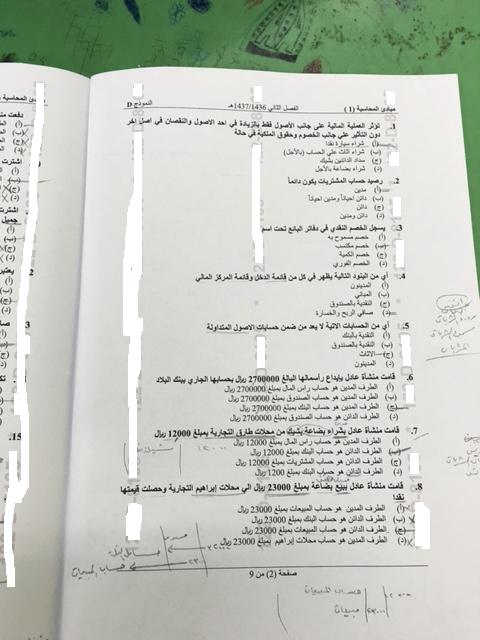 مبادئ المحاسبة (1) الفصل الثاني 1437/1436هـ النموذج D
1. تؤثر العملية المالية على جانب الأصول فقط بالزيادة في احد الاصول والنقصان في اصل اخر
دون التأثير على جانب الخصوم وحقوق الملكية في حالة
أ) شراء سيارة نقدا
ب) شراء اثاث على الحساب (بالأجل)
ج) سداد الدائنين بشيك
د) شراء بضاعة بالأجل
2. رصيد حساب المشتريات يكون دائماً
أ) مدين
ب) دائن احياناً ومدين احياناً
ج) دائن
د) دائن ومدين
3. يسجل الخصم النقدي في دفاتر البائع تحت اسم
أ) خصم مسموح به
ب) خصم مكتسب
ج) خصم الكمية
د) الخصم الفوري
4. أي من البنود التالية يظهر في كل من قائمة الدخل وقائمة المركز المالي
أ) المدينون
ب) المباني
ج) النقدية بالصندوق
د) صافي الربح والخسارة
5. أي من الحسابات الاتية لا يعد من ضمن حسابات الاصول المتداولة
أ) النقدية بالبنك
ب) النقدية بالصندوق
ج) الاثاث
د) المدينون
6. قامت منشأة عادل بإيداع رأسمالها البالغ 2700000 ريال بحسابها الجاري ببنك البلاد
أ) الطرف المدين هو حساب راس المال بمبلغ 2700000 ريال
ب) الطرف المدين هو حساب الصندوق بمبلغ 2700000 ريال
ج) الطرف المدين هو حساب البنك بمبلغ 2700000 ريال
د) الطرف الدائن هو حساب الصندوق بمبلغ 2700000 ريال
7. قامت منشأة عادل بشراء بضاعة بشيك من محلات طارق التجارية بمبلغ 12000 ريال
أ) الطرف المدين هو حساب راس المال بمبلغ 12000 ريال
ب) الطرف المدين هو حساب البنك بمبلغ 12000 ريال
ج) الطرف الدائن هو حساب المشتريات بمبلغ 12000 ريال
د) الطرف الدائن هو حساب البنك بمبلغ 12000 ريال
8. قامت منشأة عادل ببيع بضاعة بمبلغ 23000 ريال الي محلات إبراهيم التجارية وحصلت قيمتها
نقدا
أ) الطرف المدين هو حساب المبيعات بمبلغ 23000 ريال
ب) الطرف الدائن هو حساب البنك بمبلغ 23000 ريال
ج) الطرف الدائن هو حساب المبيعات بمبلغ 23000 ريال
د) الطرف المدين هو حساب محلات إبراهيم بمبلغ 23000 ريال
صفحة (2) من 9
مبادئ المحاسبة (1)
دفعت
اشترت
اشترت
جميل
يعتبر
15.